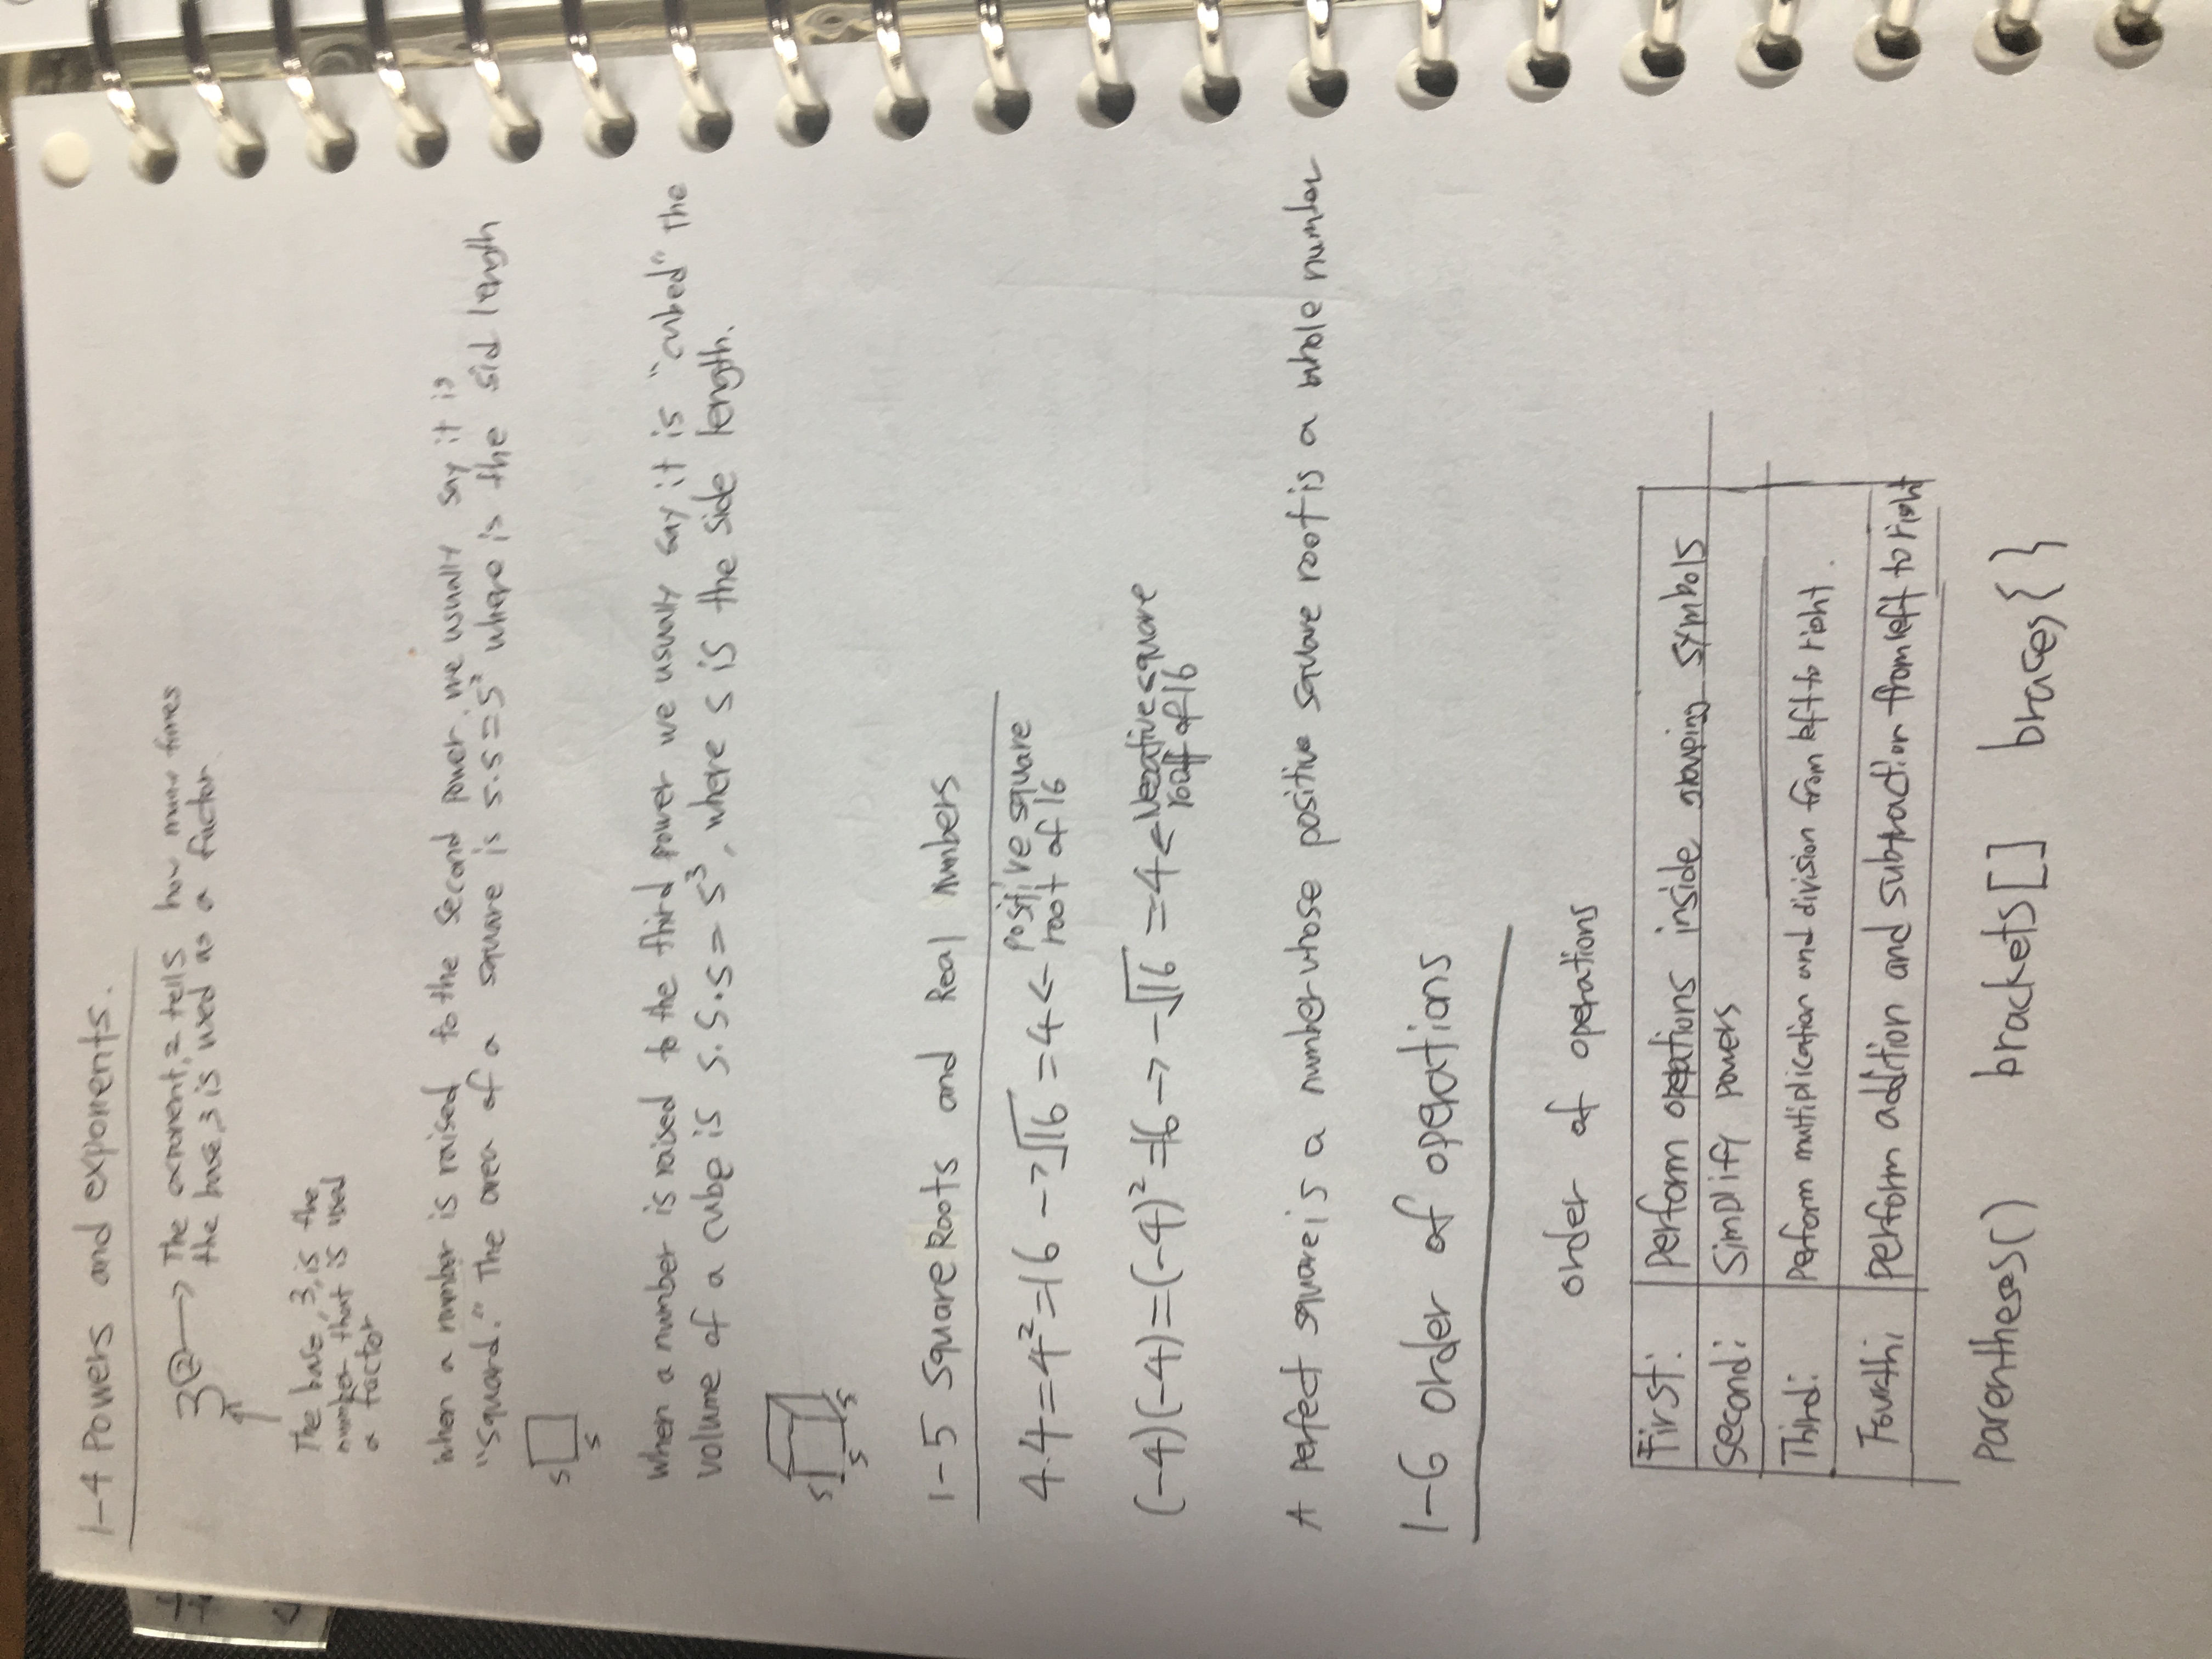 1-4 Powers and exponents.
3² → The exponent, 2 tells how many times
the base, 3 is used as a factor.
The base, 3, is the
number that is used
a factor
when a number is raised to the second power, we usually say it is
"squard." The area of a square is s·s=s² where is the sid length
s
s
when a number is raised to the third power we usually say it is "cubed" the
volume of a cube is s·s·s=s³, where s is the side length.
s
s
s
1-5 Square Roots and Real numbers
4·4=4²=16 → √16 = 4 ← positive square
root of 16
(-4)(-4)=(-4)²=16 → -√16 = 4 ← Negative square
of 16
A perfect square is a number whose positive square root is a whole number
1-6 order of operations
order of operations
First: perform opeations inside grouping symbols
Second: Simplify powers
Third: perform multiplication and division from left to right.
Fourth: perform addition and subtraction from left to right
parentheses() brackets[] braces{}